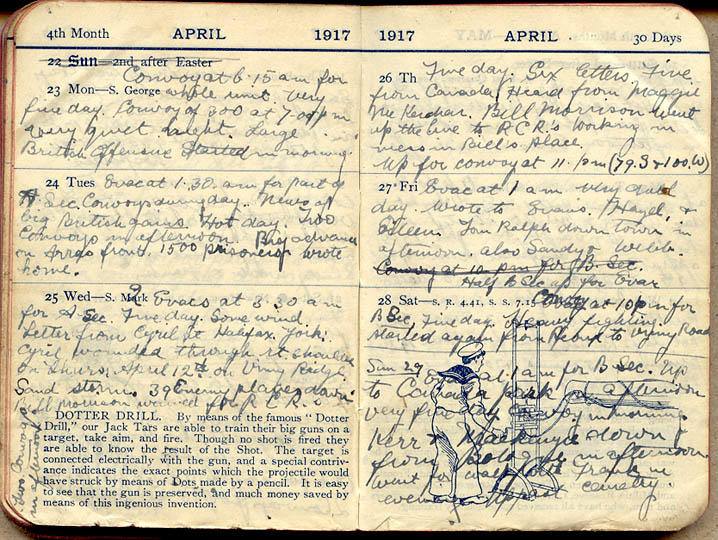 4th Month APRIL 1917
22 Sun—2nd after Easter
Convoy at 6.15 am for
23 Mon—S. George whole unit. Very
fine day. Convoy of 300 at 7.0 pm
very quiet night. Large
British offensive started in morning.
24 Tues Evac at 1.30 am for part of
A Sec. Convoys during day. News of
big British gains. Hot day. Two
Convoys in afternoon. Big advance
on Arras front. 1500 prisoners. Wrote
home.
25 Wed—S. Mark 2 Evacs at 3.30 am
for A Sec. Fine day. Some wind.
Letter from Cyril at Halifax, York.
Cyril wounded through rt shoulder
on Thurs. April 12th on Vimy Ridge.
Sand storm. 39 Enemy planes down.
Bill Morrison warned for R.C.R.'s
Two Convoys
in afternoon
DOTTER DRILL. By means of the famous "Dotter
Drill," our Jack Tars are able to train their big guns on a
target, take aim, and fire. Though no shot is fired they
are able to know the result of the Shot. The target is
connected electrically with the gun, and a special contriv-
ance indicates the exact points which the projectile would
have struck by means of Dots made by a pencil. It is easy
to see that the gun is preserved, and much money saved by
means of this ingenious invention.
1917 APRIL 30 Days
26 Th Fine day. Six letters. Five
from Canada. Heard from Maggie
McKerchar. Bill Morrison went
up the line to R.C.R.'s. Working in
mess in Bill's place.
Up for convoy at 11. pm (79.S & 100.W)
27 Fri Evac at 1 am. Very dull
day. Wrote to Evans, Hazel, &
Eileen. Tom Ralph down town in
afternoon. also Sandy & Welch.
Convoy at 10 pm for B Sec.
Half B Sec up for Evac
28 Sat—S. R. 4.41, S. S. 7.15 Convoy at 10 pm for
B Sec. Fine day. Heavy fighting
started again from to Vimy Road
Sun 29 Evac at 1 am for B Sec. Up
to Canada park in afternoon
very fine day. Convoy in morning.
Kerr & Mackenzie down
from Bologne in afternoon
went for walk with Frank in
evening. Up past cemetry.